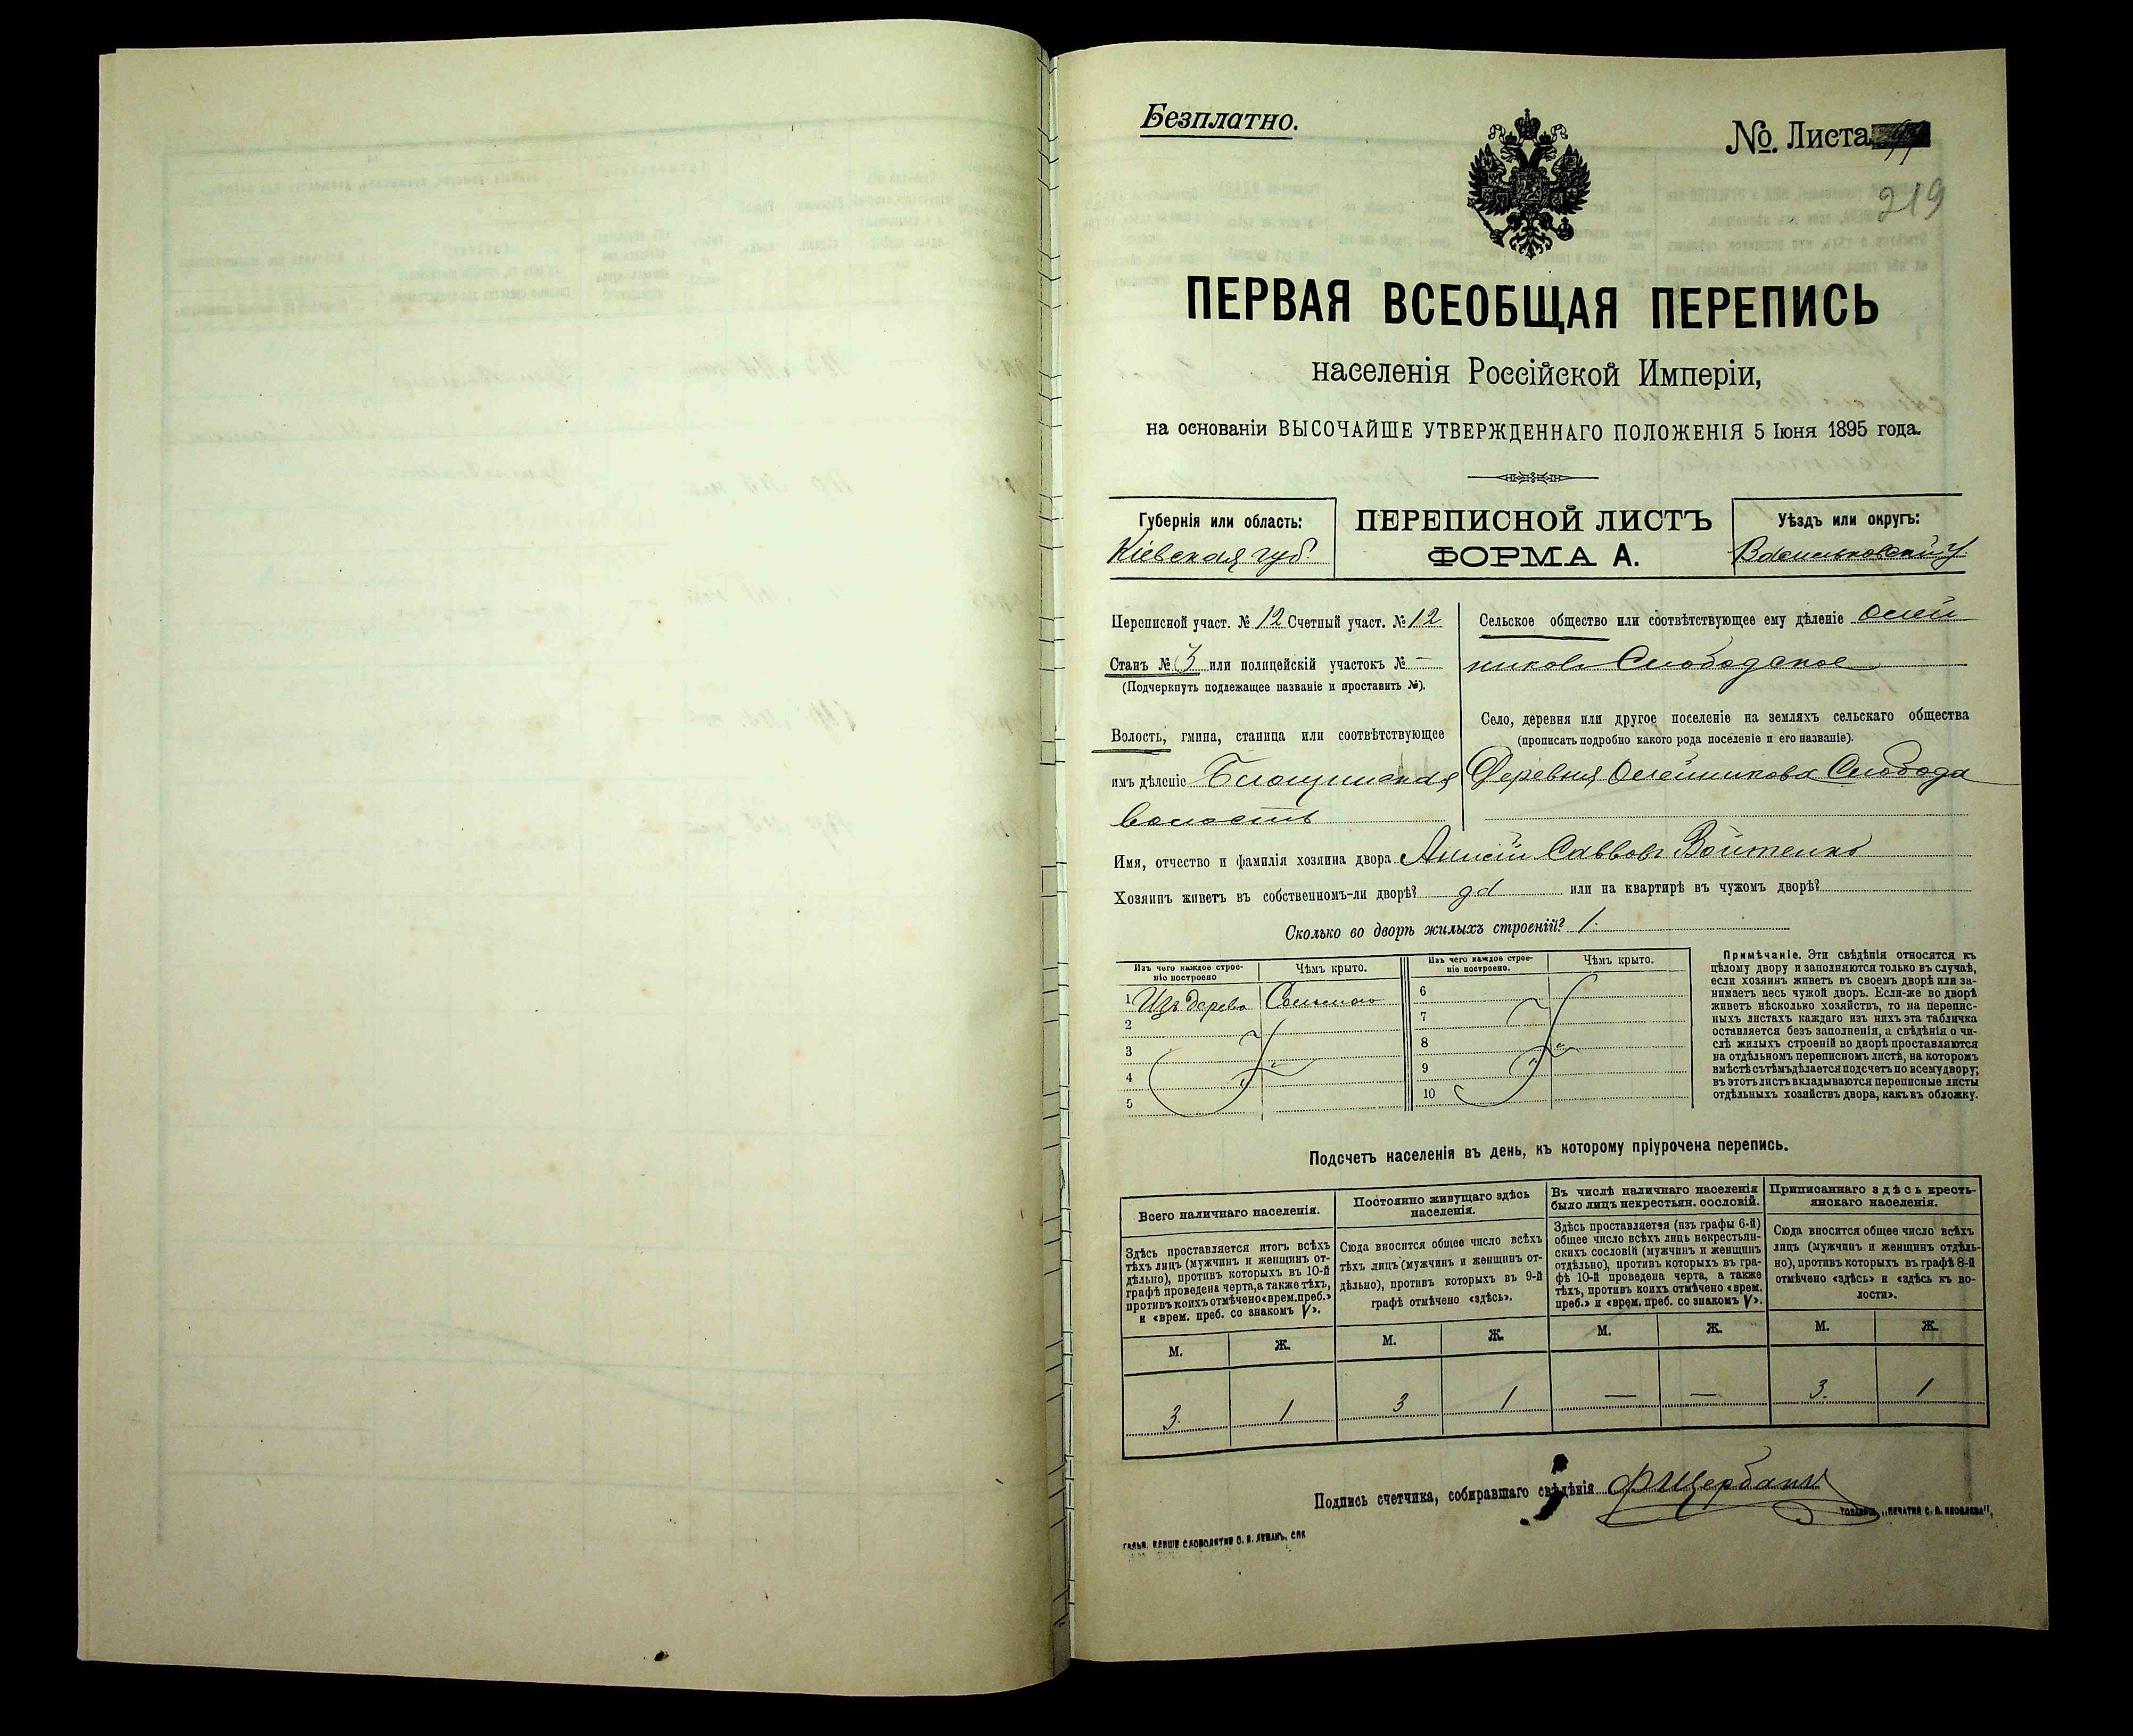 Безплатно.
№. Листа
219
ПЕРВАЯ ВСЕОБЩАЯ ПЕРЕПИСЬ
населенія Россійской Имперіи,
на основаніи ВЫСОЧАЙШЕ УТВЕРЖДЕННАГО ПОЛОЖЕНІЯ 5 Іюня 1895 года.
Губернія или область:
Кіевская губ.
ПЕРЕПИСНОЙ ЛИСТЪ
ФОРМА А.
Уѣздъ или округъ:
Васильковскій у.
Переписной участ. № 12 Счетный участ. № 12
Станъ № 3 или полицейскій участокъ № —
(Подчеркнуть подлежащее названіе и проставить №).
Волость, гмина, станица или соотвѣтствующее
имъ дѣленіе Блощинская
волость
Сельское общество или соотвѣтствующее ему дѣленіе Олей
никово Слободское
Село, деревня или другое поселеніе на земляхъ сельскаго общества
(прописать подробно какого рода поселеніе и его названіе).
Деревня Олейникова Слобода
Имя, отчество и фамилія хозяина двора Саввовъ Войтенко
Хозяинъ живетъ въ собственномъ-ли дворѣ? да или на квартирѣ въ чужомъ дворѣ?
Сколько во дворѣ жилыхъ строеній? 1.
Изъ чего каждое строе-
ніе построено
Чѣмъ крыто.
Изъ чего каждое строе-
ніе построено.
Чѣмъ крыто.
1 Изъ дерева Соломою
2
3
4
5
6
7
8
9
10
Примѣчаніе. Эти свѣдѣнія относятся къ
цѣлому двору и заполняются только въ случаѣ,
если хозяинъ живетъ въ своемъ дворѣ или за-
нимаетъ весь чужой дворъ. Если-же во дворѣ
живетъ нѣсколько хозяйствъ, то на перепис-
ныхъ листахъ каждаго изъ нихъ эта табличка
оставляется безъ заполненія, а свѣдѣнія о чи-
слѣ жилыхъ строеній во дворѣ проставляются
на отдѣльномъ переписномъ листѣ, на которомъ
вмѣстѣ съ тѣмъ дѣлается подсчетъ по всему двору;
въ этотъ листъ вкладываются переписные листы
отдѣльныхъ хозяйствъ двора, какъ въ обложку.
Подсчетъ населенія въ день, къ которому пріурочена перепись.
Всего наличнаго населенія.
Здѣсь проставляется итогъ всѣхъ
тѣхъ лицъ (мужчинъ и женщинъ от-
дѣльно), противъ которыхъ въ 10-й
графѣ проведена черта, а также тѣхъ,
противъ коихъ отмѣчено «врем. преб.»
и «врем. преб. со знакомъ V».
Постоянно живущаго здѣсь
населенія.
Сюда вносится общее число всѣхъ
тѣхъ лицъ (мужчинъ и женщинъ от-
дѣльно), противъ которыхъ въ 9-й
графѣ отмѣчено «здѣсь».
Въ числѣ наличнаго населенія
было лицъ некрестьян. сословій.
Здѣсь проставляется (изъ графы 6-й)
общее число всѣхъ лицъ некрестьян-
скихъ сословій (мужчинъ и женщинъ
отдѣльно), противъ которыхъ въ гра-
фѣ 10-й проведена черта, а также
тѣхъ, противъ коихъ отмѣчено «врем.
преб.» и «врем. преб. со знакомъ V».
Приписаннаго здѣсь кресть-
янскаго населенія.
Сюда вносится общее число всѣхъ
лицъ (мужчинъ и женщинъ отдѣль-
но), противъ которыхъ въ графѣ 8-й
отмѣчено «здѣсь» и «здѣсь къ во-
лости».
М. Ж. М. Ж. М. Ж. М. Ж.
3. 1 3 1 — — 3. 1
Подпись счетчика, собиравшаго свѣдѣнія Ф Щербакъ
ГАЛЬВ. КЛИШЕ СЛОВОЛИТНИ О. И. ЛЕМАНЪ, СПБ
ТОВАРИЩ. „ПЕЧАТНЯ С. П. ЯКОВЛЕВА",